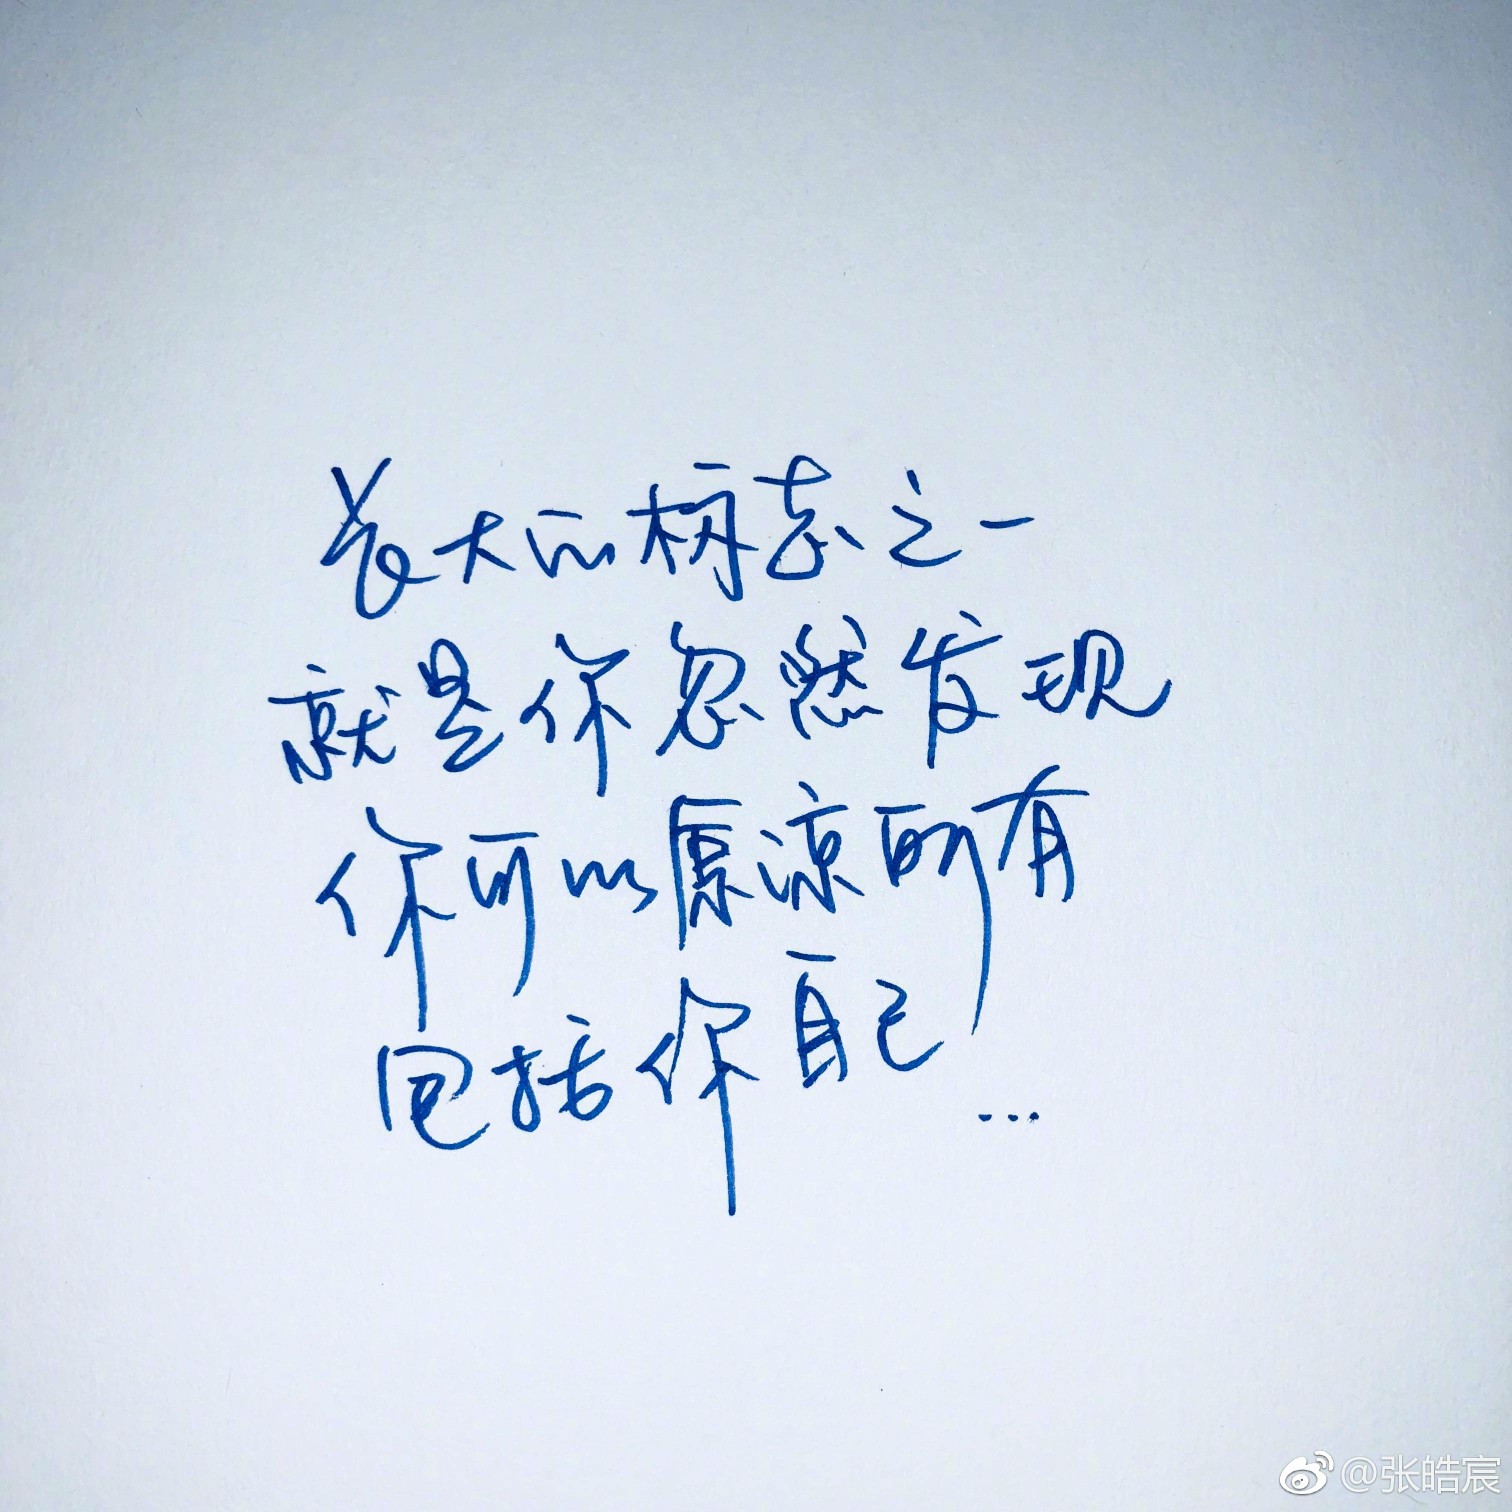 长大的标志之一
就是你忽然发现
你可以原谅所有
包括你自己...
@张皓宸